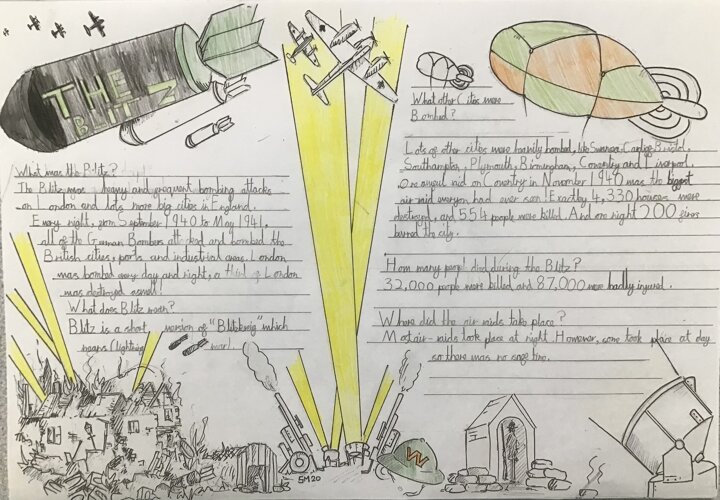 THE
BLITZ
What was the Blitz?
The Blitz was heavy and frequent bombing attacks
on London and lots more big cities in England.
Every night, from September 1940 to May 1941,
all of the German Bombers attacked and bombed the
British cities, ports and industrial areas. London
was bombed every day and night, a third of London
was destroyed aswell!
What does Blitz mean?
Blitz is a short version of "Blitzkreig" which
means (lightning war).
What other Cites were
Bombed?
Lots of other cities were heavily bombed, like Swansea, Cardige, Bristol,
Southampton, Plymouth, Birmingham, Coventry and Liverpool.
One raid on Coventry in November 1940 was the biggest
air raid everyon had ever seen! Exactly 4,330 houses were
destroyed, and 554 people were killed. And one night 200 fires
burned the city.
How many died during the Blitz?
32,000 people were killed and 87,000 were badly injured.
Where did the air-raids take place?
Most air-raids took place at night. However, some took place at day
so there was no safe time.
W
SM20